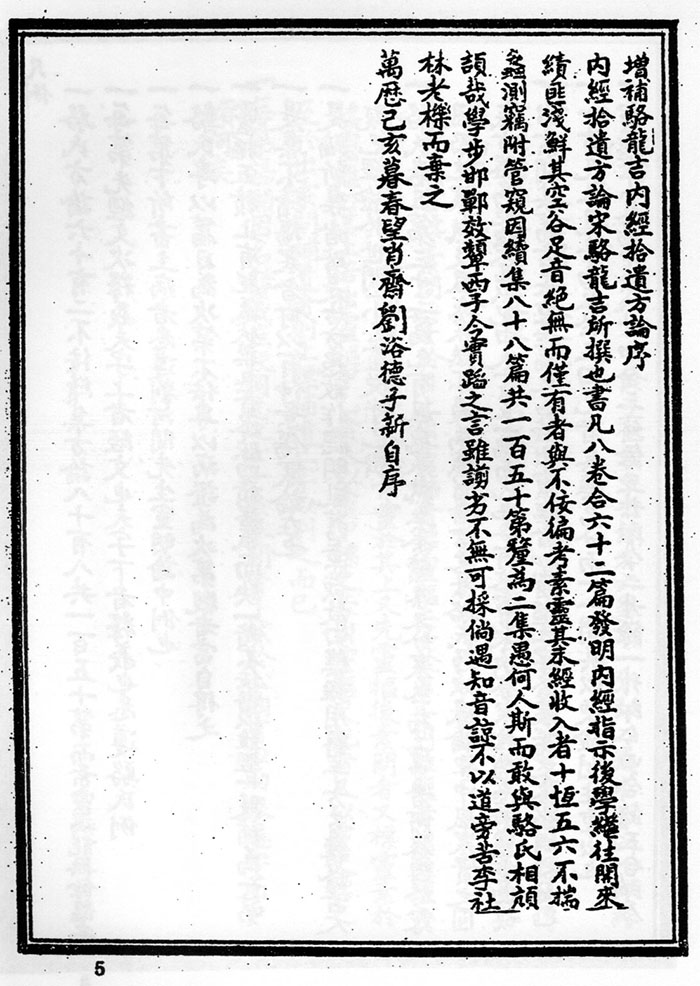 增補駱龍吉內經拾遺方論序
內經拾遺方論宋駱龍吉所撰也書凡八卷合六十二篇發明內經指示後學繼往開來
績匪淺鮮其空谷足音絕無而僅有者與不佞徧考素靈其未經收入者十恆五六不揣
蠡測竊附管窺因續集八十八篇共一百五十第釐為二集愚何人斯而敢與駱氏相頏
頡哉學步邯鄲效顰西子今實蹈之言雖謭劣不無可採倘遇知音諒不以道旁苦李社
林老櫟而棄之
萬曆己亥暮春望肖齋劉浴德子新自序
5